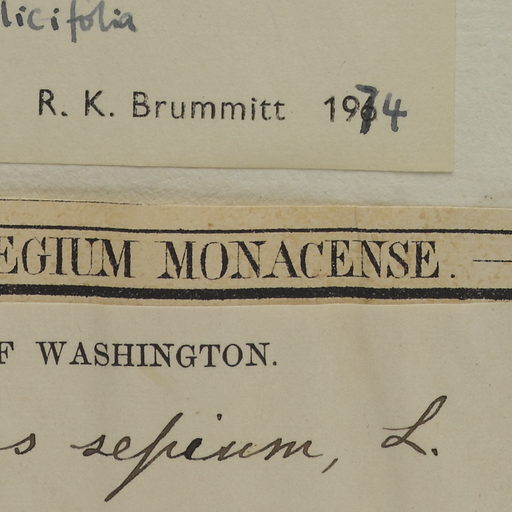 licifolia
R. K. Brummitt 1974
EGIUM MONACENSE.
F WASHINGTON.
s sepium, L.